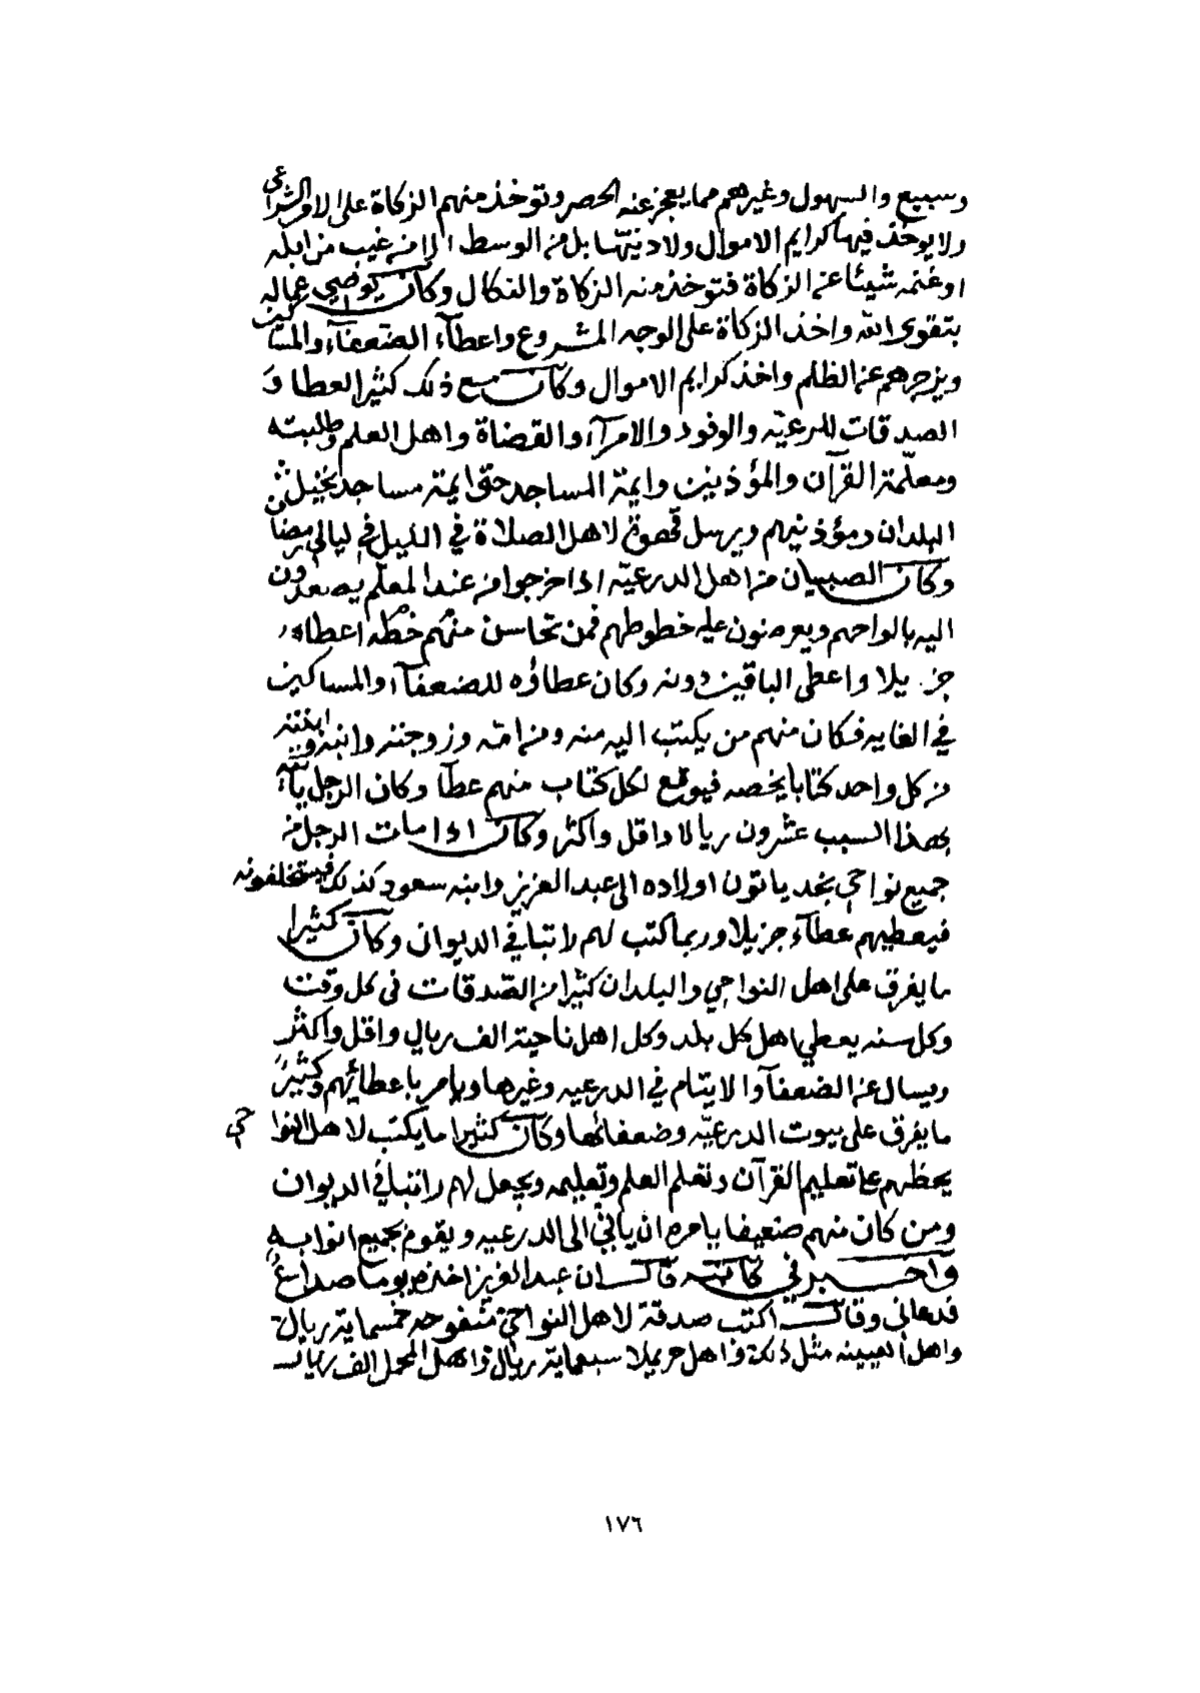 وسبيع والسهول وغيرهم مما يعجز عنه الحصر وتوخذ منهم الزكاة على الامر الشراعي
ولا يوخذ فيها كرايم الاموال ولا دنيتها بل من الوسط الا من غيب من ابله
او غنمه شيئا عن الزكاة فتوخذ منه الزكاة والنكال وكان يوصي عماله
بتقوى الله واخذ الزكاة على الوجه المشروع واعطآء الضعفآء والمساكين
ويزجرهم عن الظلم واخذ كرايم الاموال وكان مع ذلك كثير العطا و
الصدقات للرعية والوفود والامرآء والقضاة واهل العلم وطلبته
ومعلمة القرآن والمؤذنين وايمة المساجد حتى ايمة مساجد نخيل
البلدان ومؤذنيهم ويرسل قهوة لاهل الصلاة في الليل في ليالي رمضا
وكان الصبيان من اهل الدرعية اذا خرجوا من عند المعلم يصعدون
اليه بالواحهم ويعرضون عليه خطوطهم فمن تحاسن منهم خطه اعطاه
جزيلا واعطى الباقين دونه وكان عطاؤه للضعفآء والمساكين
في الغايه فكان منهم من يكتب اليه منه ومن امه وزوجته وابنه وابنته
من كل واحد كتابا يخصه فيوقع لكل كتاب منهم عطآ وكان الرجل ياتيه
بهذا السبب عشرون ريالا واقل واكثر وكان اذا مات الرجل من
جميع نواحي نجد ياتون اولاده الى عبد العزيز وابنه سعود كذلك فيستخلفونه
فيعطيهم عطآء جزيلا وربما كتب لهم راتبا في الديوان وكان كثيرا
ما يفرق على اهل النواحي والبلدان كثيرا من الصدقات في كل وقت
وكل سنه يعطي اهل كل بلد وكل اهل ناحية الف ريال واقل واكثر
ويسال عن الضعفآ والايتام في الدرعيه وغيرها ويامر باعطائهم وكثيرا
ما يفرق على بيوت الدرعية وضعفائها وكان كثيرا ما يكتب لاهل النواحي
يحظهم على تعليم القرآن وتعلم العلم وتعليمه ويجعل لهم راتبا في الديوان
ومن كان منهم ضعيفا يامره ان ياتي الى الدرعيه ويقوم بجميع انوابه
واخبرني كاتبه قال ان عبد العزيز اخذه يوما صداع
فدعاني وقال اكتب صدقة لاهل النواحي منفوحه خمسماية ريال
واهل العيينه مثل ذلك واهل حريملا سبعماية ريال واهل المحمل الف ريال
١٧٦